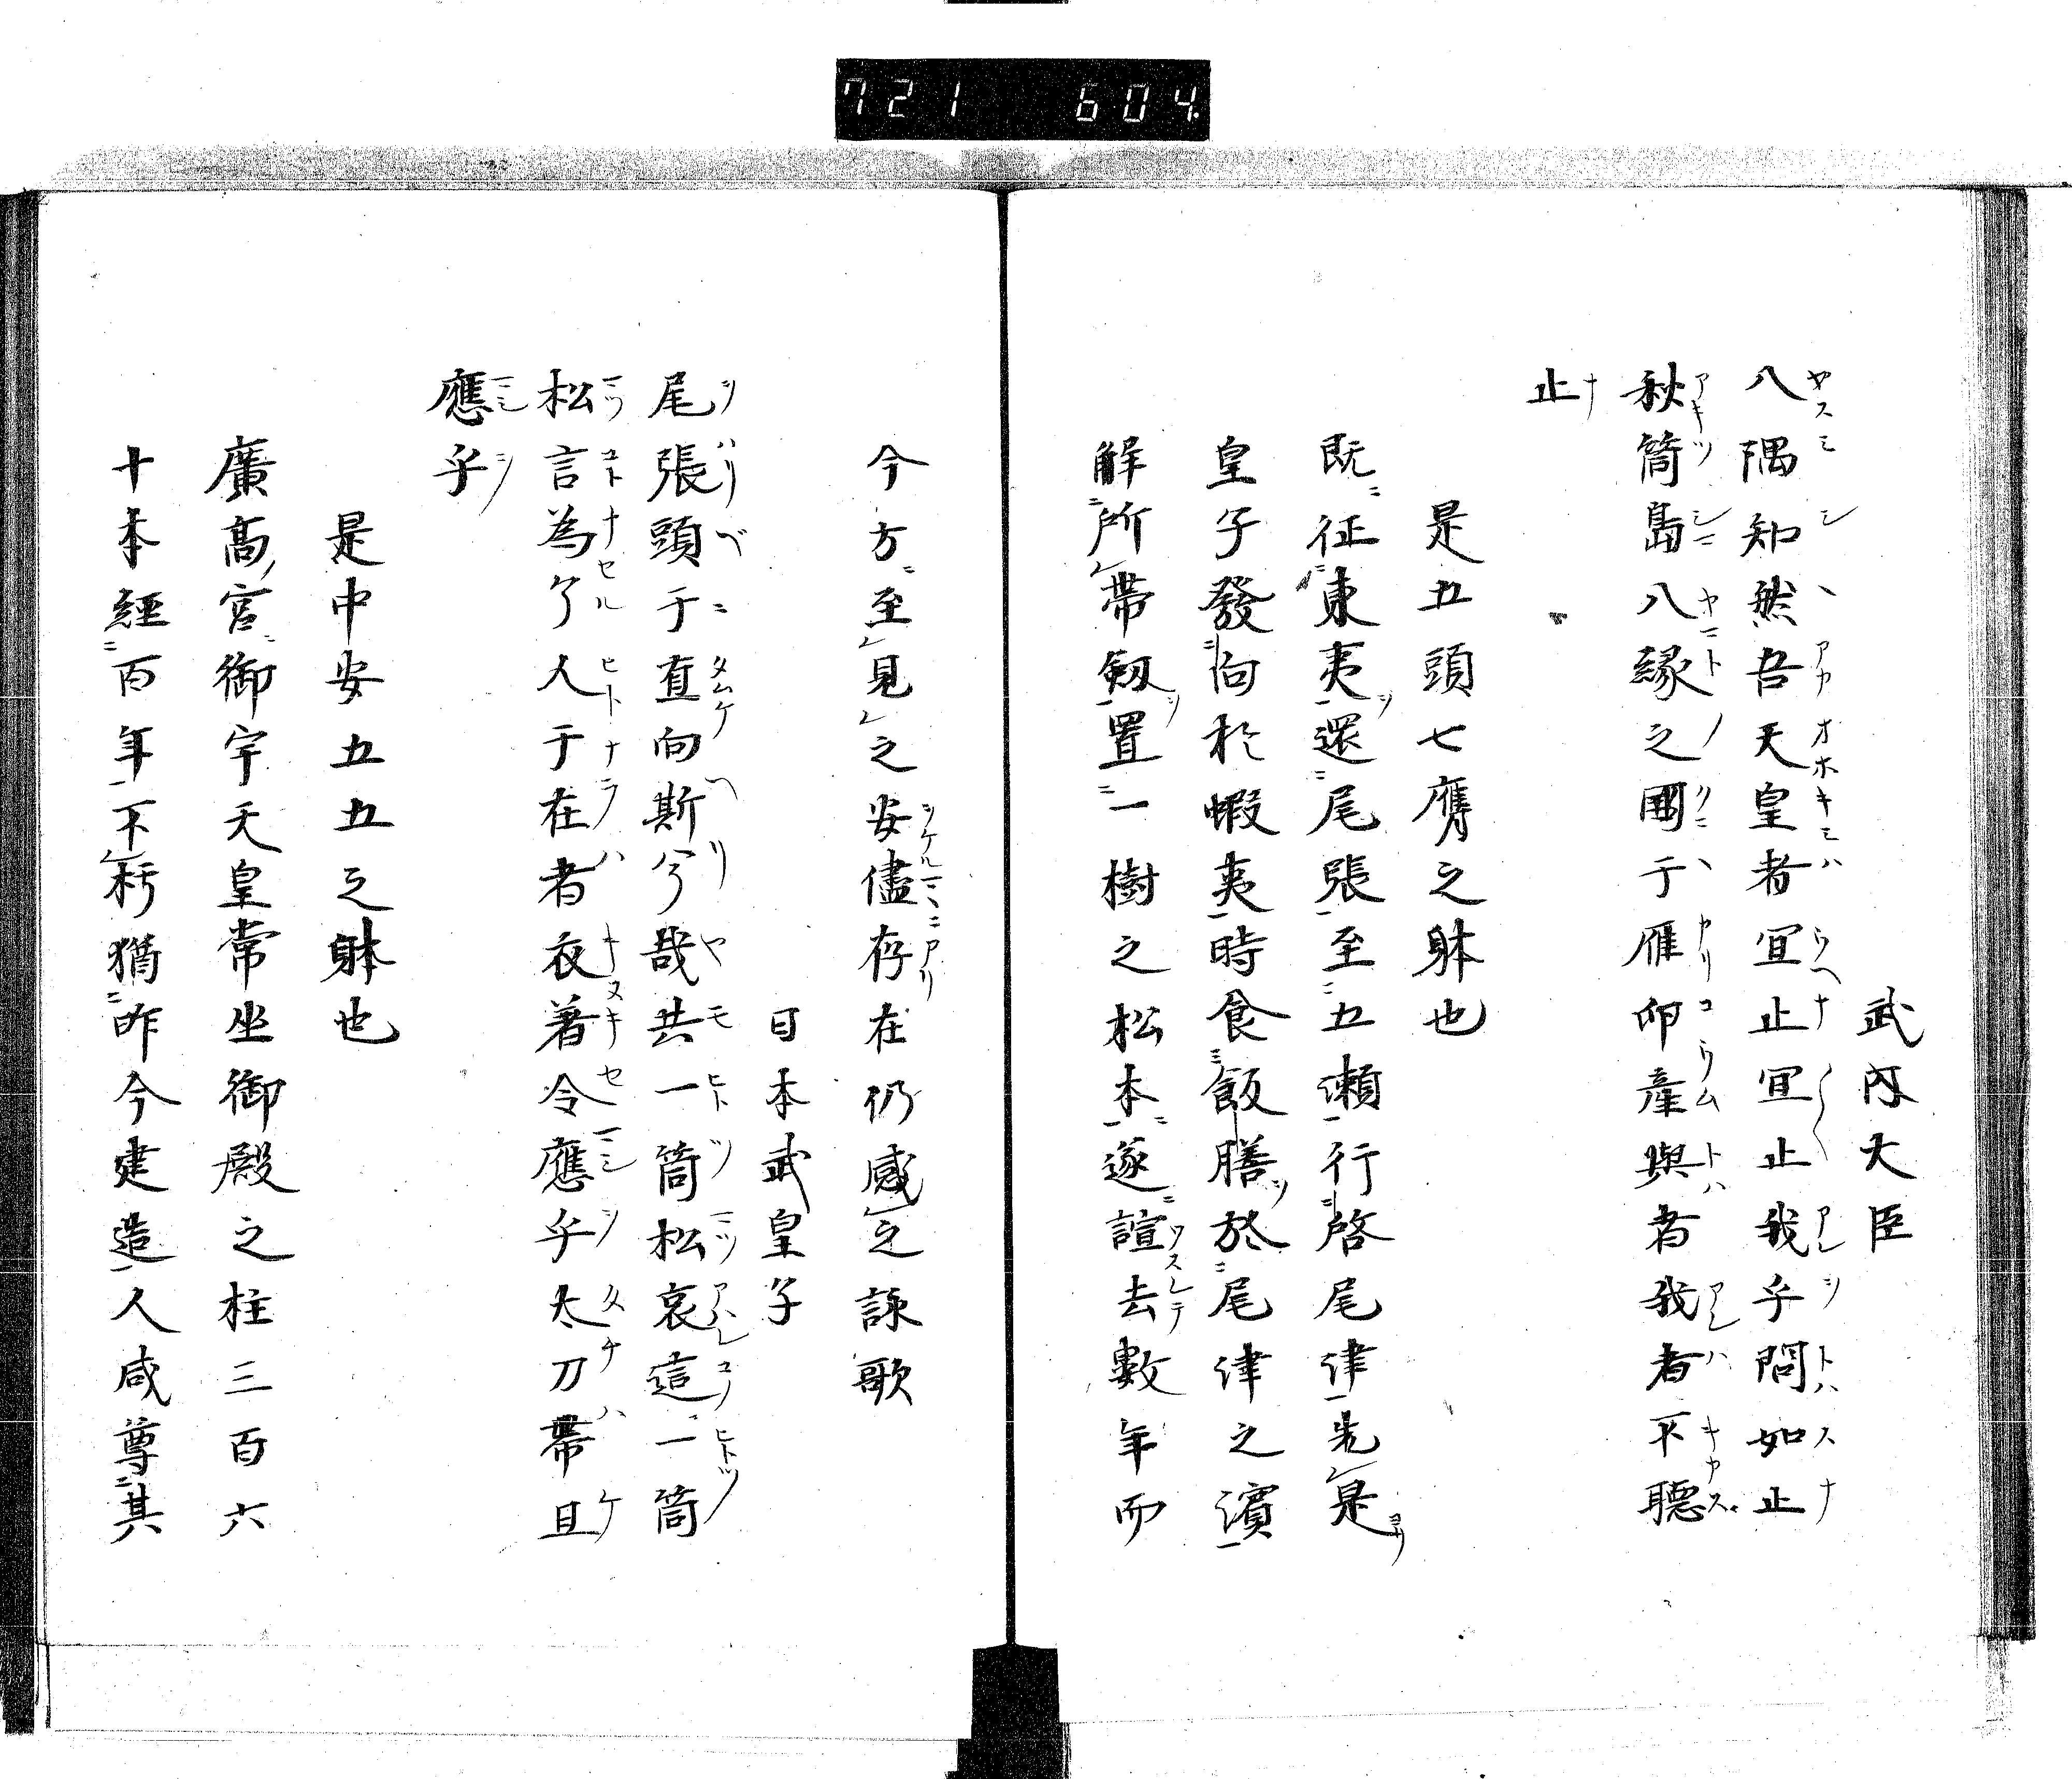 721 604.
武内大臣
八隅知然吾天皇者宜止宜止我乎問如止
秋筒島八縁之國于雁卵産與者我者不聽
止
是五頭七膺之躰也
既征東夷還尾張至五瀬行啓尾津先是
皇子發向於蝦夷時食飯膳於尾津之濱
解所帯劔置一樹之松本遂諠去數年而
今方至見之安儘存在仍感之詠歌
日本武皇子
尾張頭于直向斯兮哉共一筒松哀這一筒
松言為兮人于在者衣著令應乎太刀帯且
應乎
是中安五五之躰也
廣高宮御宇天皇常坐御殿之柱三百六
十本經百年不朽猶昨今建造人咸尊其